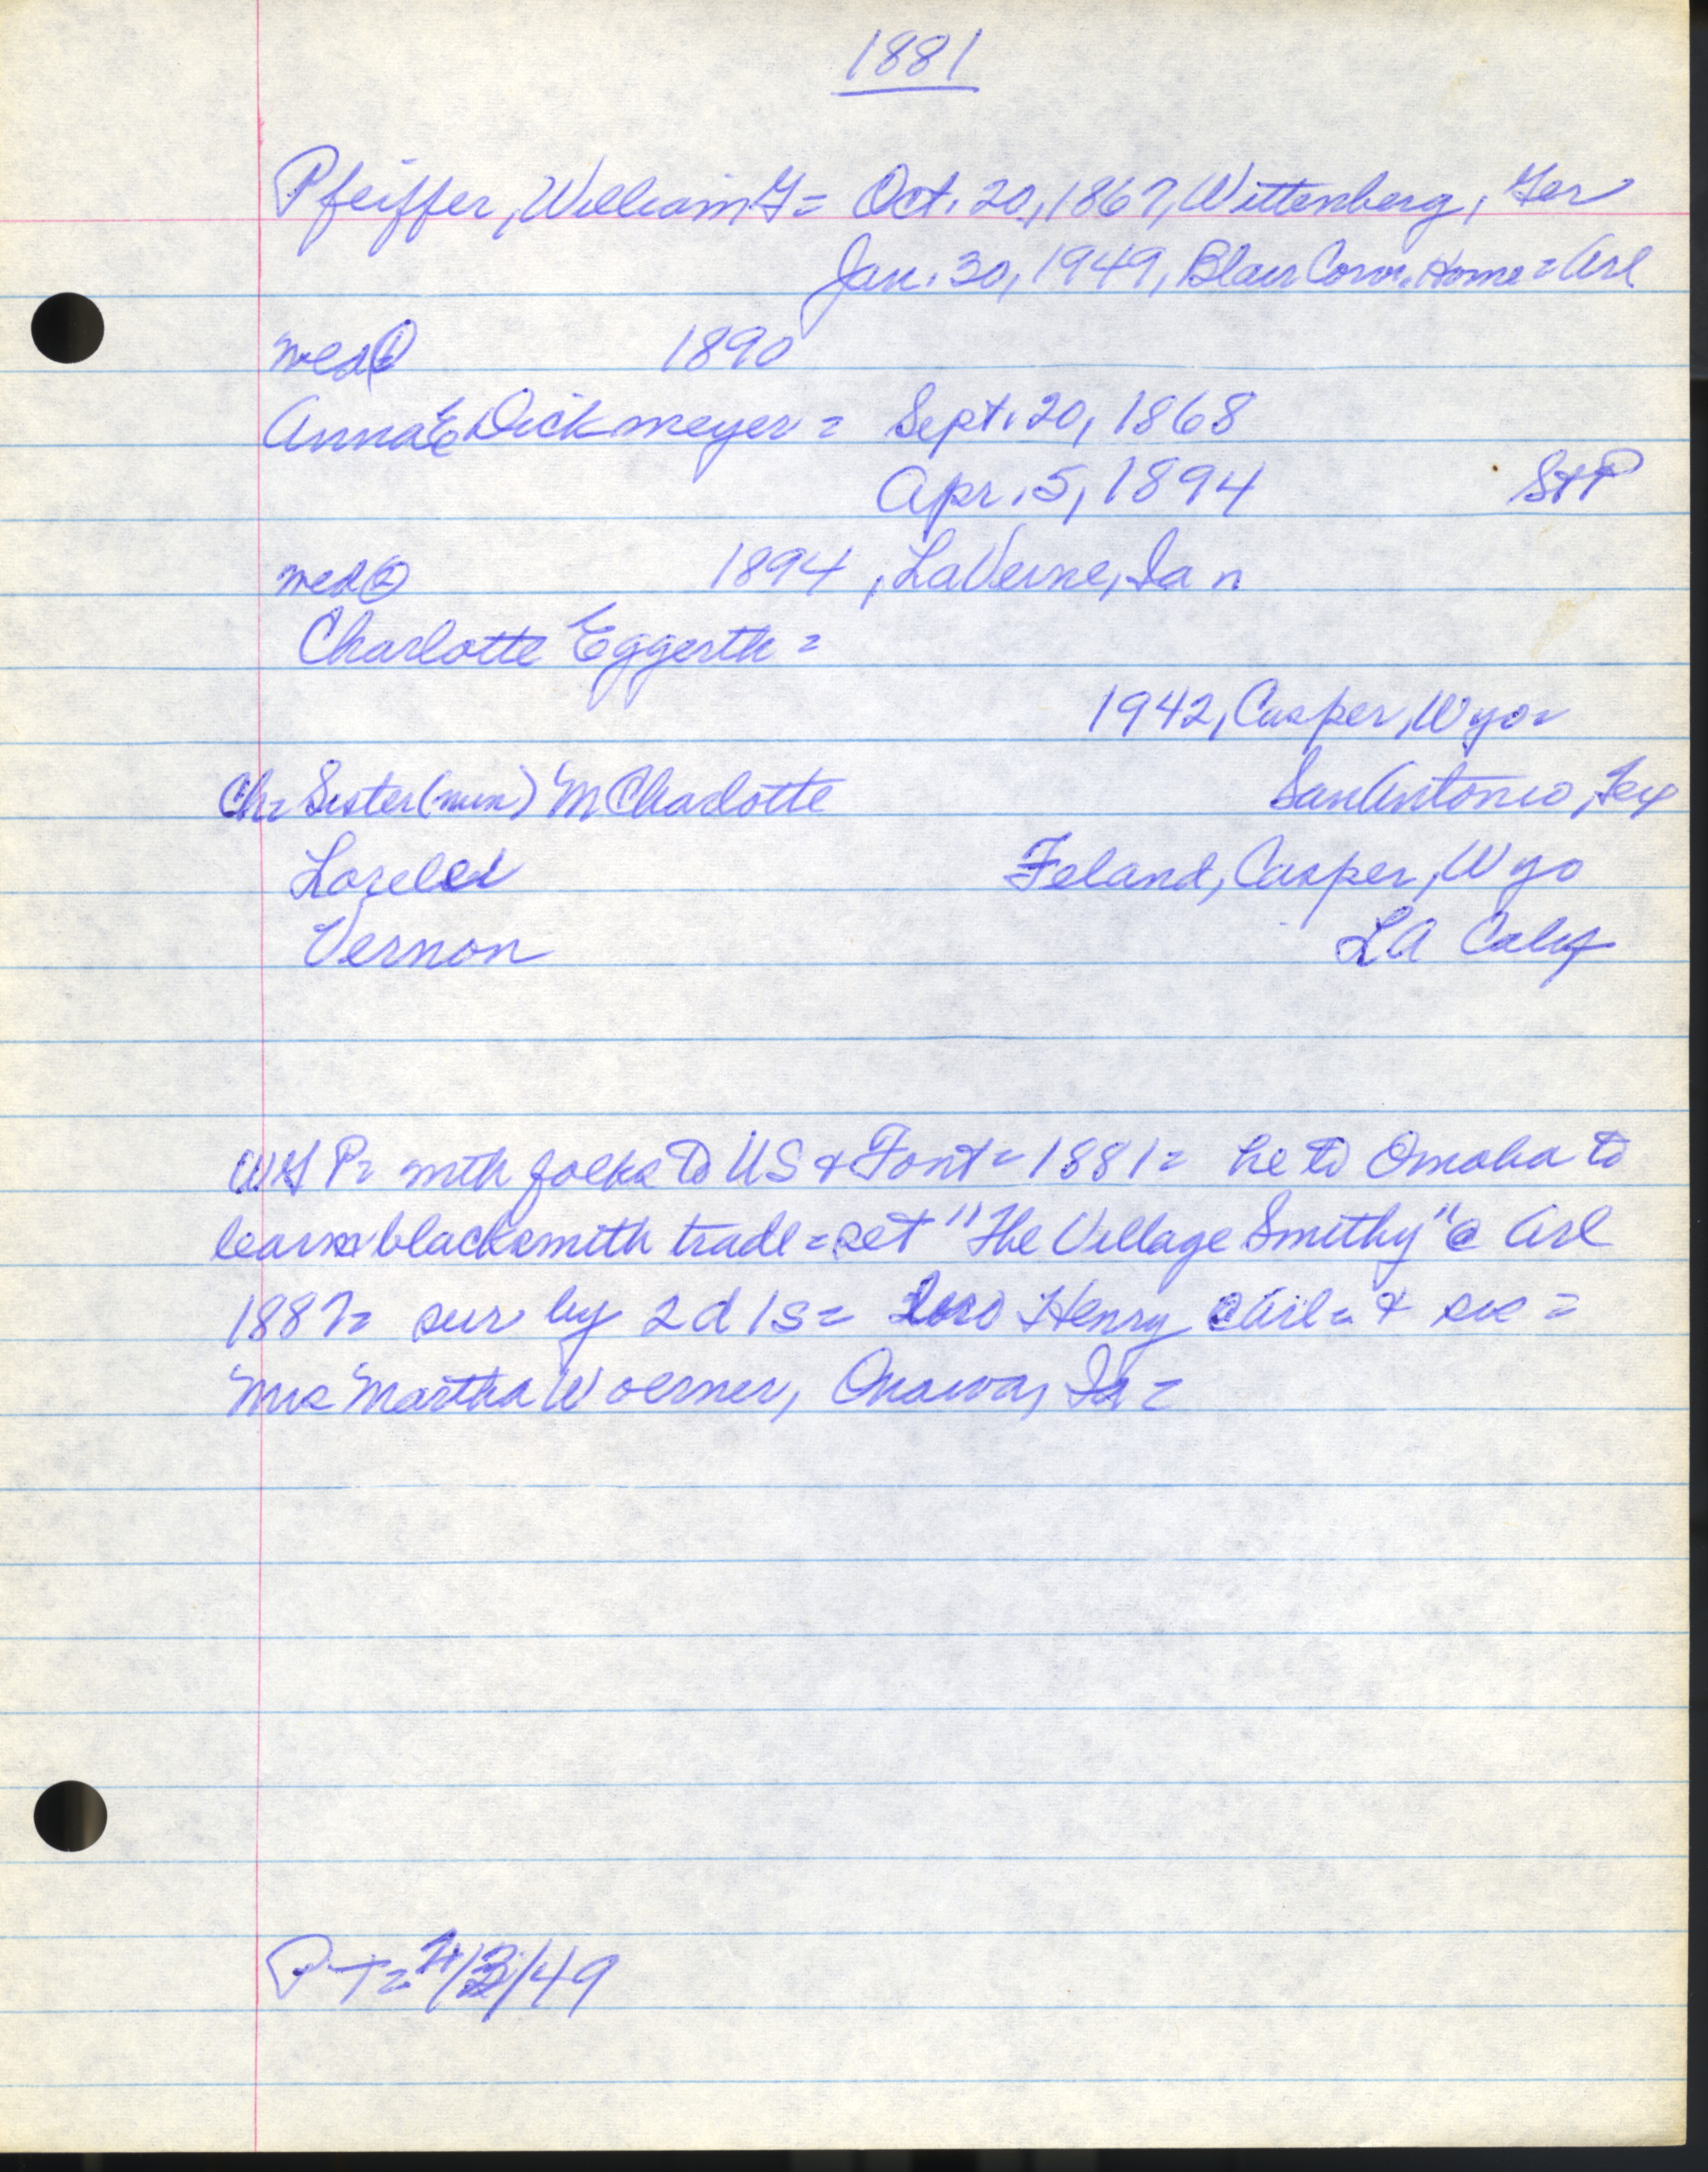 1881
Pfeiffer, William G = Oct. 20, 1867, Wittenberg, Ger
Jan. 30, 1949, Blair Conv. Home = Arl
wed ① 1890
Anna E Dickmeyer = Sept. 20, 1868
Apr. 5, 1894 StP
wed ② 1894, LaVerne, Ia
Charlotte Eggerth =
1942, Casper, Wyo =
Ch = Sister (nun) M Charlotte San Antonio, Tex
Lorelei Feland, Casper, Wyo
Vernon LA Calif
WGP = with folks to US & Font = 1881 = he to Omaha to
learn blacksmith trade = set "The Village Smithy" @ Arl
1887 = sur by 2d 1s = Henry @ Arl = & sis =
Mrs Martha Woerner, Onawa, Ia =
P-T = /3/49